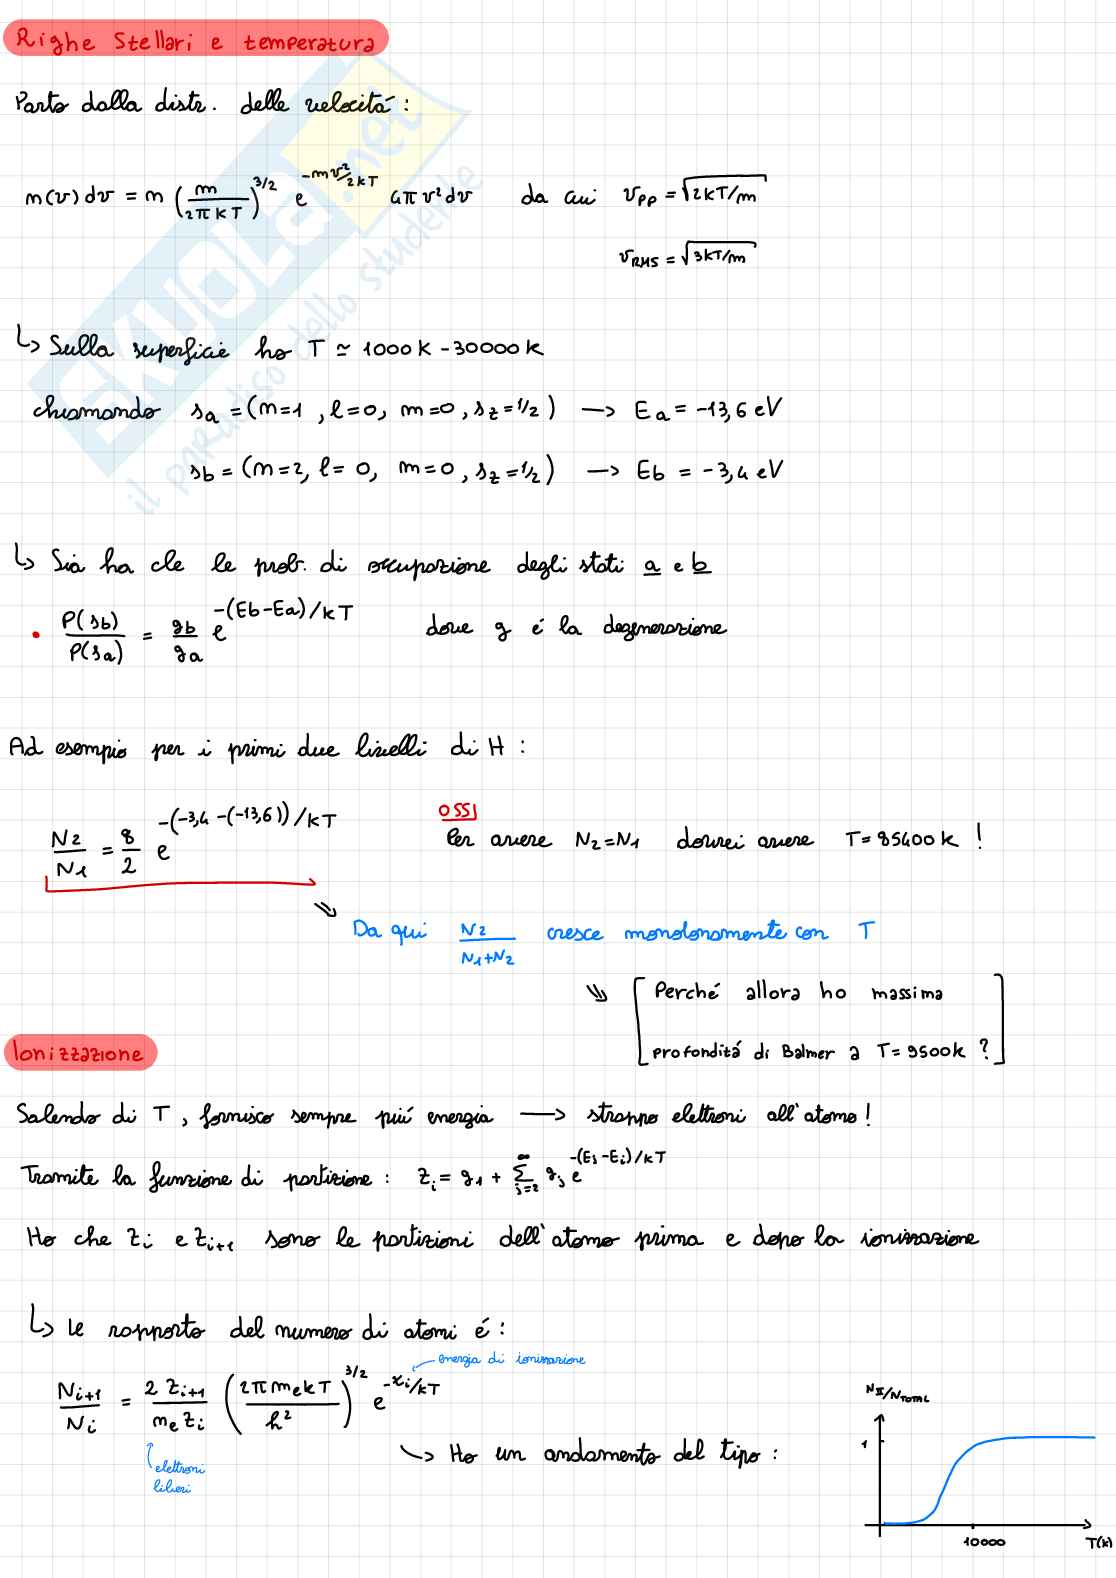 Righe Stellari e temperatura
Parto dalla distr. delle velocitá :
n(v) dv = n (m / 2πkT)^3/2 e^-mv²/2kT 4πv² dv da cui v_PP = √2kT/m
v_RMS = √3kT/m
↳ Sulla superficie ho T ≃ 1000 K - 30000 K
chiamando s_a = (m=1, l=0, m=0, s_z=1/2) → E_a = -13,6 eV
s_b = (m=2, l=0, m=0, s_z=1/2) → E_b = -3,4 eV
↳ Sia ha che le prob. di occupazione degli stati a e b
• P(s_b)/P(s_a) = g_b/g_a e^-(E_b-E_a)/kT dove g é la degenerazione
Ad esempio per i primi due livelli di H :
N_2/N_1 = 8/2 e^-(-3,4 -(-13,6))/kT
OSS
Per avere N_2=N_1 dovrei avere T=85400 K !
⇘ Da qui N_2/(N_1+N_2) cresce monotonamente con T
⇘ [Perché allora ho massima
profonditá di Balmer a T=9500K ?]
Ionizzazione
Salendo di T, fornisco sempre piú energia → strappo elettroni all'atomo !
Tramite la funzione di partizione : Z_i = g_1 + ∑_j=2^∞ g_j e^-(E_j-E_i)/kT
Ho che Z_i e Z_i+1 sono le partizioni dell'atomo prima e dopo la ionizzazione
↳ Le rapporto del numero di atomi é :
energia di ionizzazione
N_i+1/N_i = 2 Z_i+1/(m_e Z_i) (2π m_e kT/h²)^3/2 e^-χ_i/kT
elettroni
liberi
↳ Ho un andamento del tipo :
N_II/N_TOTAL
1
10000
T(K)
SKUOLA.net
il paradiso dello studente